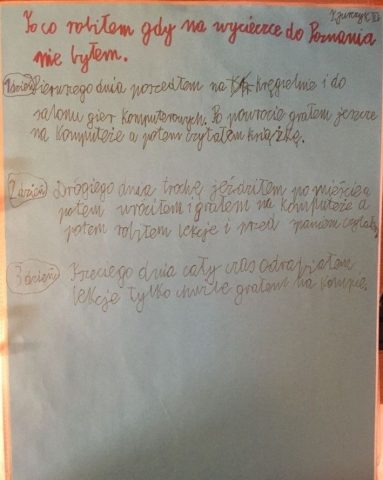 To co robiłem gdy na wycieczce do Poznania
nie byłem.
1 dzień Pierwszego dnia poszedłem na kręgielnie i do
salonu gier komputerowych. Po powrocie grałem jeszcze
na komputeże a potem czytałem książkę.
2 dzień Drógiego dnia trochę jeździłem po mieście a
potem wróciłem i grałem na komputeże a
potem robiłem lekcje i przed spaniem czytałem
3 dzień Trzeciego dnia cały czas odrabiałem
lekcje tylko chwile grałem na kompie.